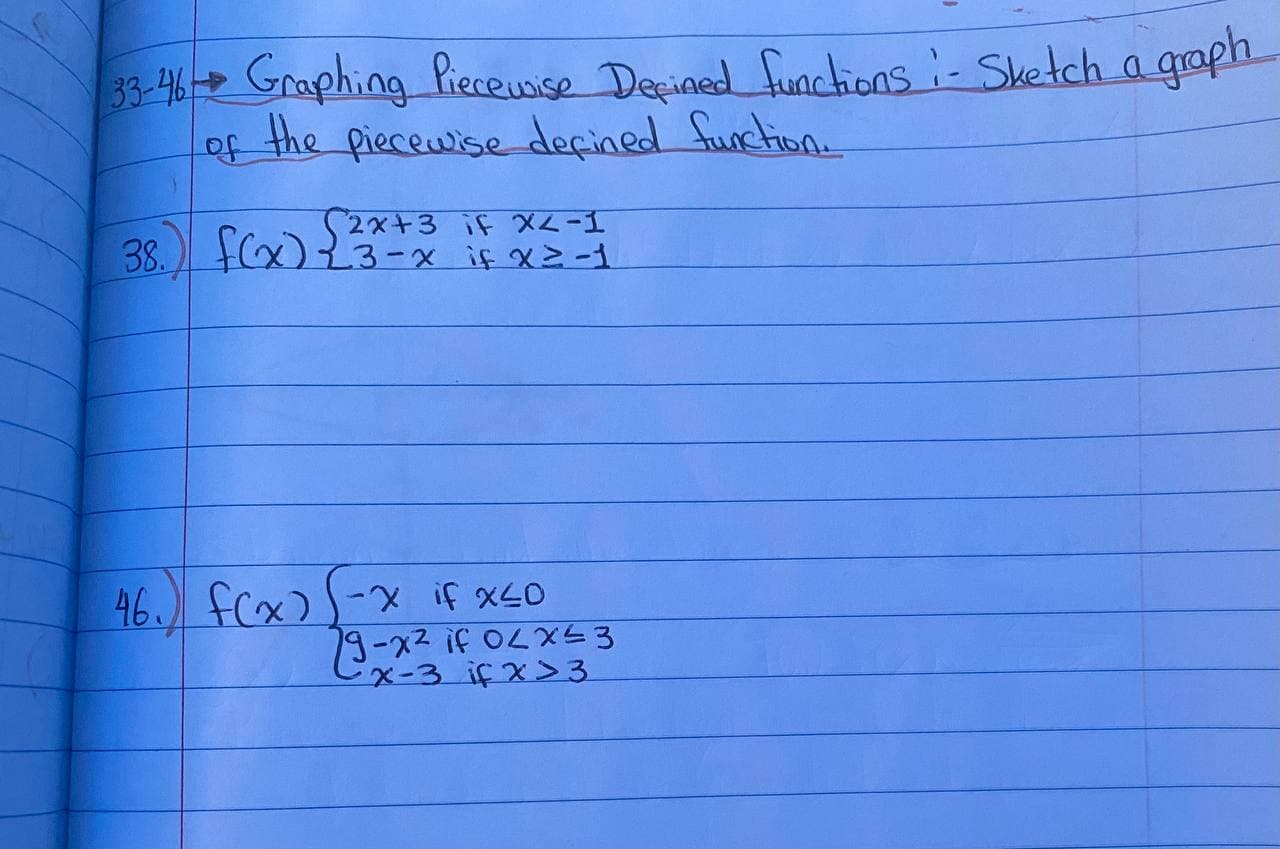 33-46→ Graphing Piecewise Defined functions :- Sketch a graph
of the piecewise defined function.
38.) f(x) { 2x+3 if x<-1
3-x if x≥-1
46.) f(x) { -x if x≤0
9-x² if 0<x≤3
x-3 if x>3